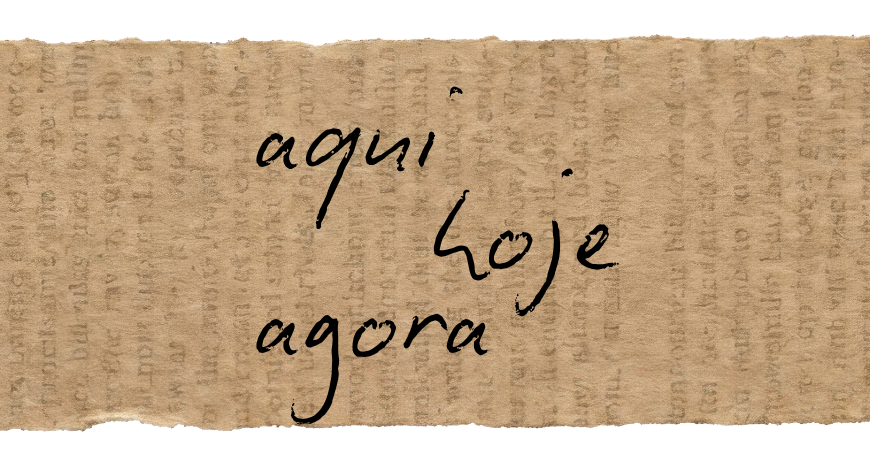 aqui
hoje
agora